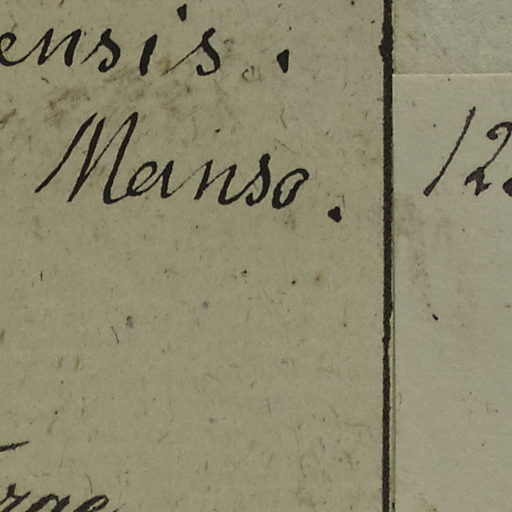 ensis.
Manso. 12
rae